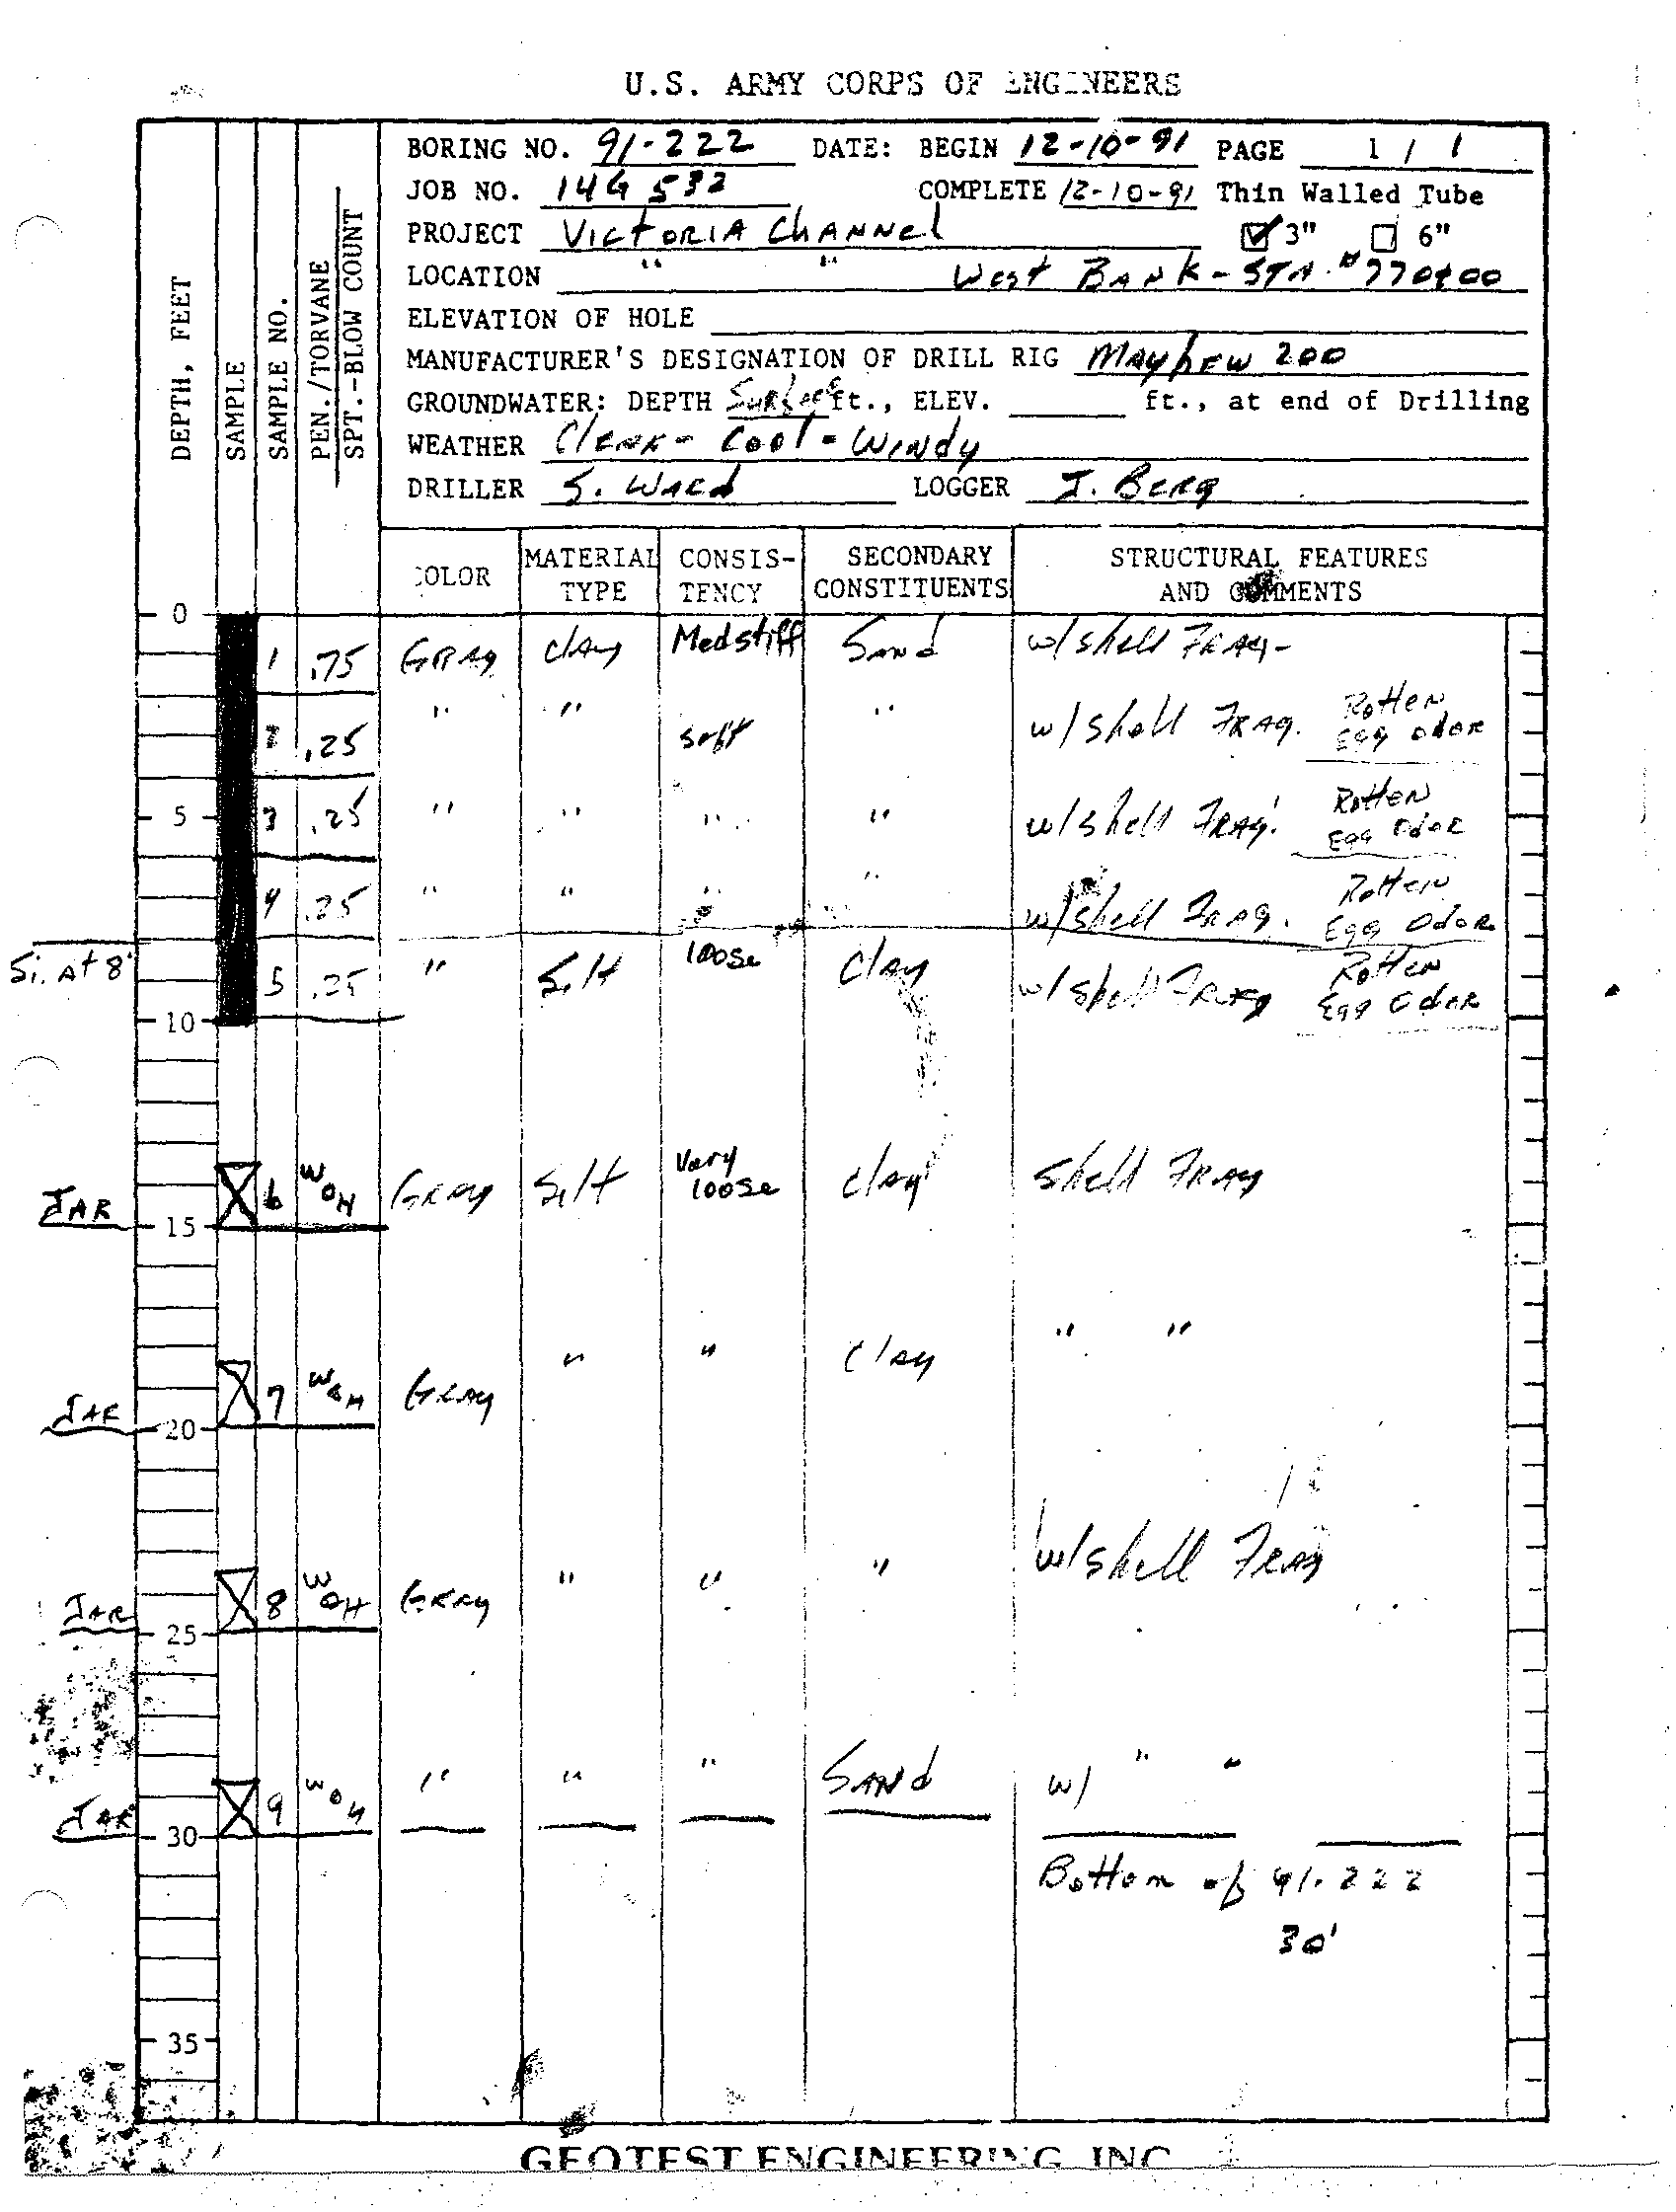 U.S. ARMY CORPS OF ENGINEERS
BORING NO. 91-222 DATE: BEGIN 12-10-91 PAGE 1 / 1
JOB NO. 14G 532 COMPLETE 12-10-91 Thin Walled Tube
PROJECT VICTORIA CHANNEL 3" 6"
LOCATION " " West BANK - STA. #770+00
ELEVATION OF HOLE
MANUFACTURER'S DESIGNATION OF DRILL RIG MAYHEW 200
GROUNDWATER: DEPTH Surface ft., ELEV. ft., at end of Drilling
WEATHER CLEAR - Cool - WINDY
DRILLER S. WARd LOGGER J. BERG
DEPTH, FEET
SAMPLE
SAMPLE NO.
PEN./TORVANE
SPT.-BLOW COUNT
COLOR MATERIAL TYPE CONSISTENCY SECONDARY CONSTITUENTS STRUCTURAL FEATURES AND COMMENTS
0
1 .75 GRAY CLAY Med stiff SAND w/shell FRAG-
2 .25 " " soft " w/shell FRAG. Rotten Egg odoR
5 3 .25 " " " " w/shell FRAG. Rotten Egg OdoR
4 .25 " " " " w/shell FRAG. Rotten Egg OdoR
Si. At 8' 5 .25 " Silt loose Clay w/shell FRAG Rotten Egg OdoR
10
JAR 15 6 WOH GRAY Silt Very loose clay shell FRAG
JAR 20 7 WOH GRAY " " Clay " "
JAR 25 8 WOH GRAY " " " w/shell FRAG
JAR 30 9 WOH " " " SAND w/ " "
Bottom of 91-222
30'
35
GEOTEST ENGINEERING, INC